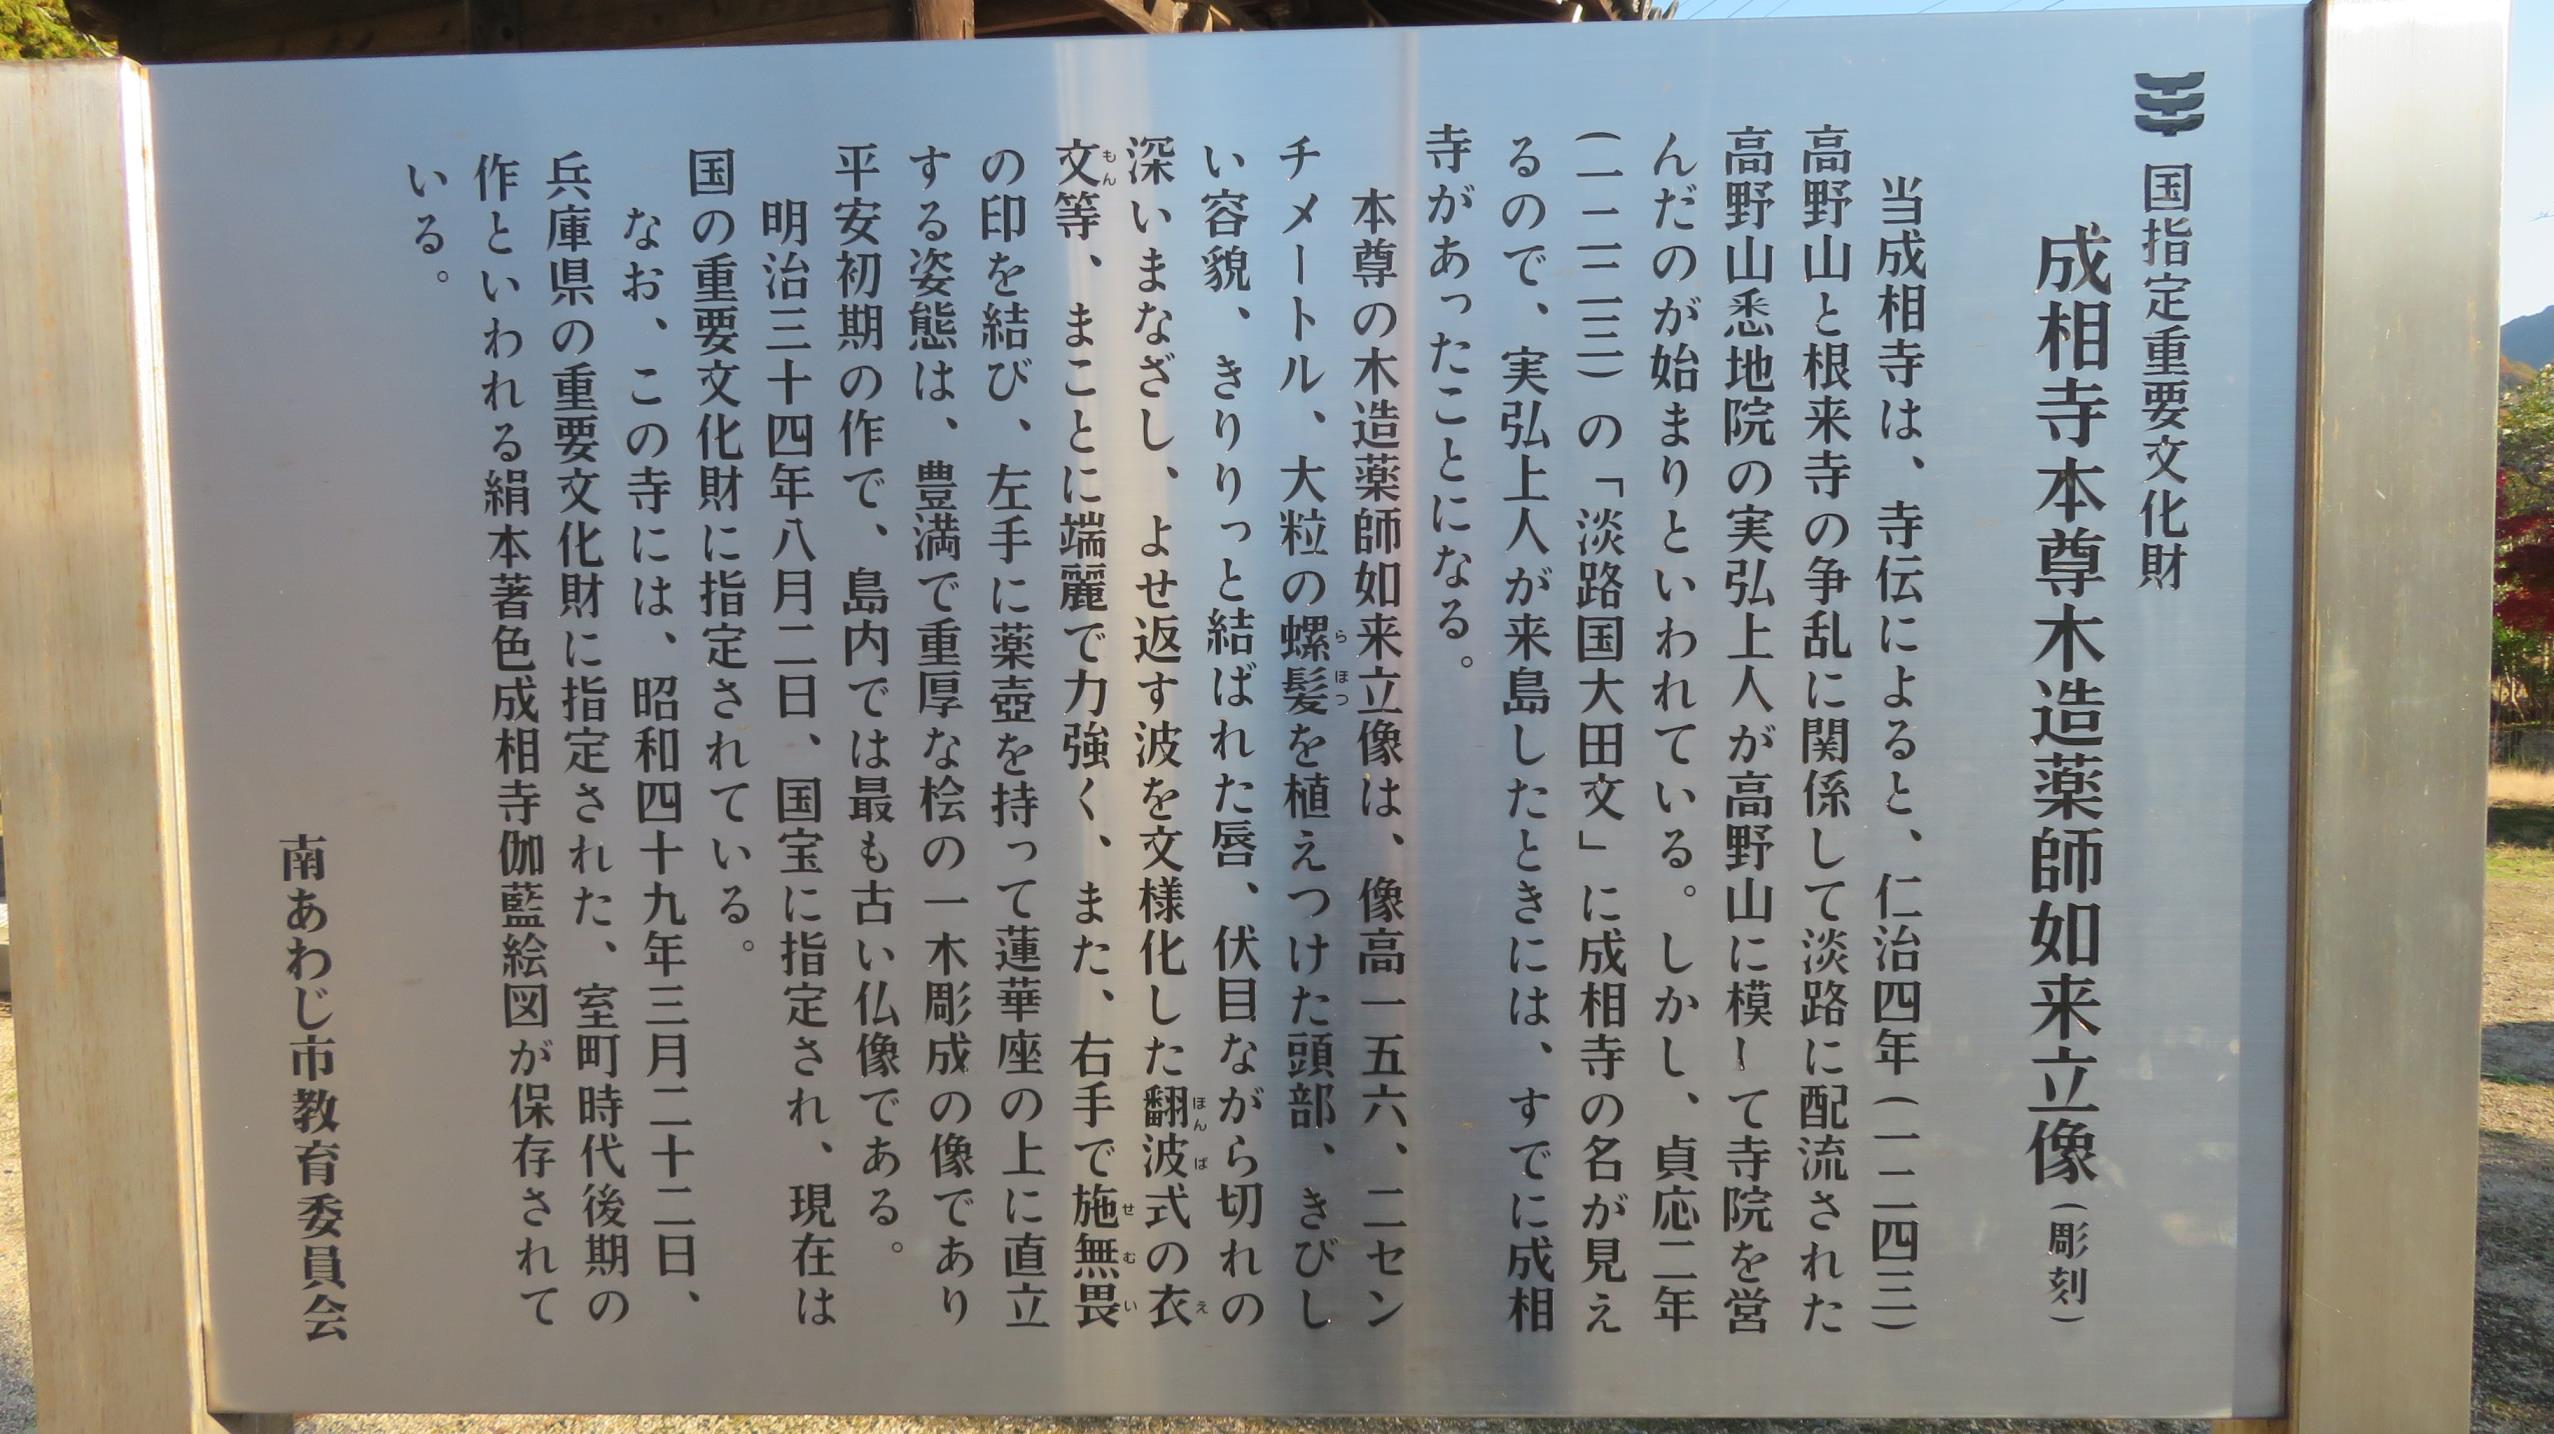 国指定重要文化財
成相寺本尊木造薬師如来立像(彫刻)
当成相寺は、寺伝によると、仁治四年(一二四三)
高野山と根来寺の争乱に関係して淡路に配流された
高野山悉地院の実弘上人が高野山に模して寺院を営
んだのが始まりといわれている。しかし、貞応二年
(一二二三)の「淡路国大田文」に成相寺の名が見え
るので、実弘上人が来島したときには、すでに成相
寺があったことになる。
本尊の木造薬師如来立像は、像高一五六、二セン
チメートル、大粒の螺髪を植えつけた頭部、きびし
い容貌、きりりっと結ばれた唇、伏目ながら切れの
深いまなざし、よせ返す波を文様化した翻波式の衣
文等、まことに端麗で力強く、また、右手で施無畏
の印を結び、左手に薬壺を持って蓮華座の上に直立
する姿態は、豊満で重厚な桧の一木彫成の像であり
平安初期の作で、島内では最も古い仏像である。
明治三十四年八月二日、国宝に指定され、現在は
国の重要文化財に指定されている。
なお、この寺には、昭和四十九年三月二十二日、
兵庫県の重要文化財に指定された、室町時代後期の
作といわれる絹本著色成相寺伽藍絵図が保存されて
いる。
南あわじ市教育委員会